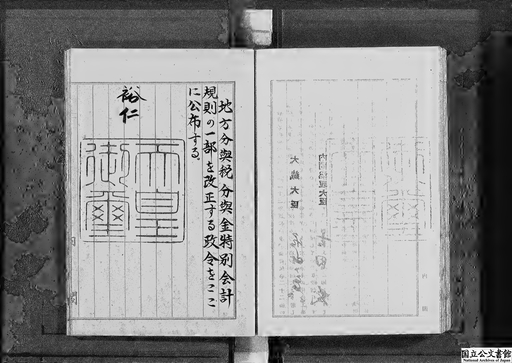 地方分與税分與金特別会計
規則の一部を改正する政令をここ
に公布する。
裕仁
天皇
御璽
内閣総理大臣
大藏大臣
内閣
国立公文書館
National Archives of Japan